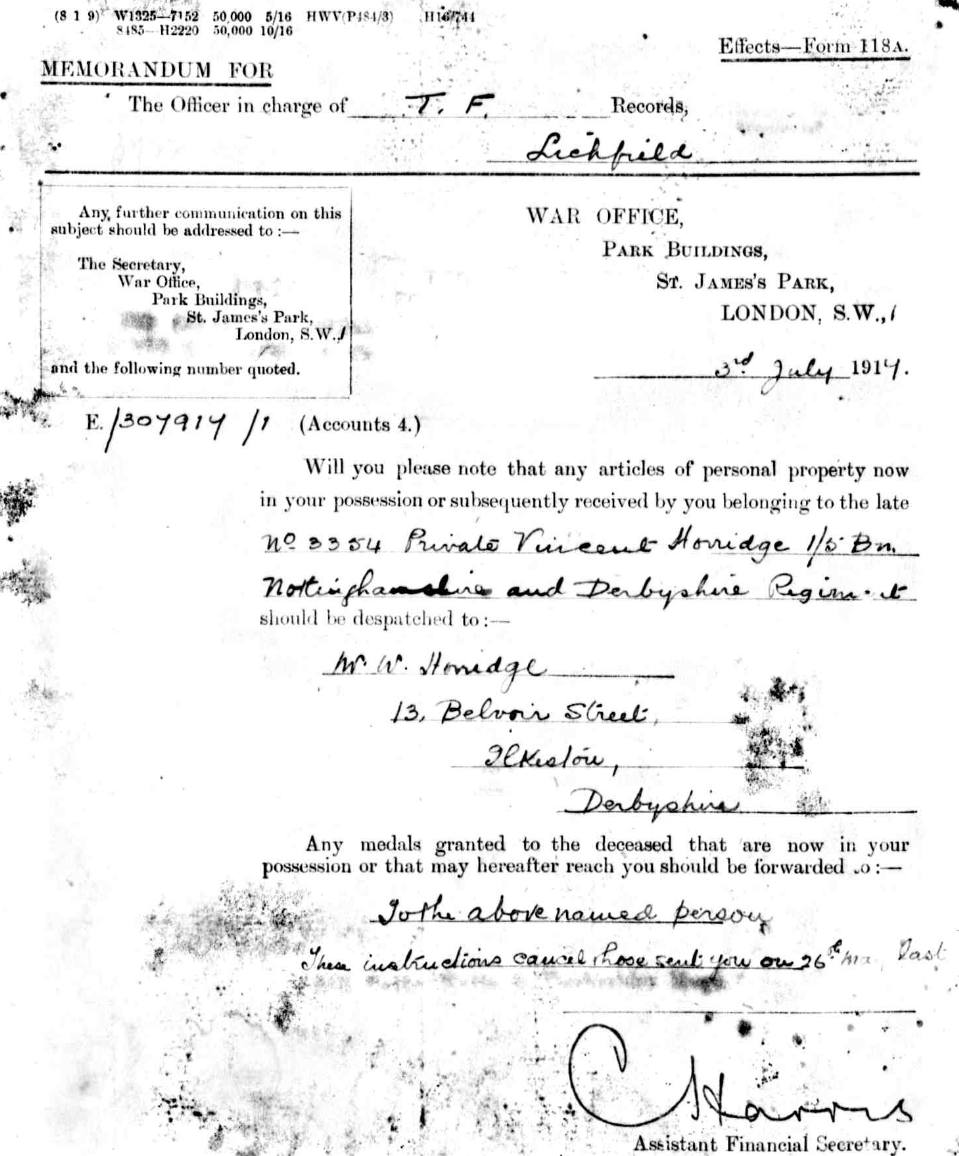 (8 1 9) W1325—7152 50,000 5/16 HWV(P484/3) H16/744
8485—H2220 50,000 10/16
Effects—Form 118A.
MEMORANDUM FOR
The Officer in charge of T. F. Records,
Lichfield
Any further communication on this
subject should be addressed to :—
The Secretary,
War Office,
Park Buildings,
St. James's Park,
London, S.W.1
and the following number quoted.
WAR OFFICE,
PARK BUILDINGS,
ST. JAMES'S PARK,
LONDON, S.W.,1
3rd July 1917.
E./307917/1 (Accounts 4.)
Will you please note that any articles of personal property now
in your possession or subsequently received by you belonging to the late
No 3354 Private Vincent Horridge 1/5 Bn.
Nottinghamshire and Derbyshire Regiment
should be despatched to :—
Mr. W. Horridge
13, Belvoir Street,
Ilkeston,
Derbyshire
Any medals granted to the deceased that are now in your
possession or that may hereafter reach you should be forwarded to :—
To the above named person
These instructions cancel those sent you on 26th last
C Harris
Assistant Financial Secretary.